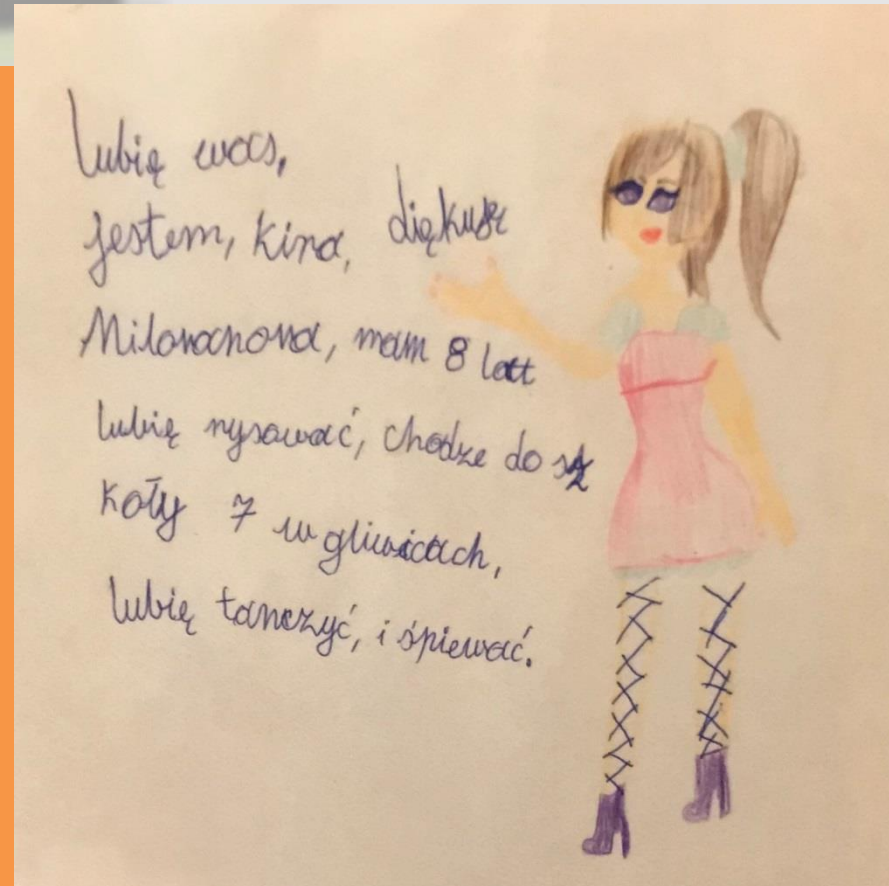 lubię was,
jestem, kira, diękuję
Milovanova, mam 8 latt
lubię rysawać, chodze do sz
koły 7 w gliwicach,
lubię tanczyć, i śpiewać.